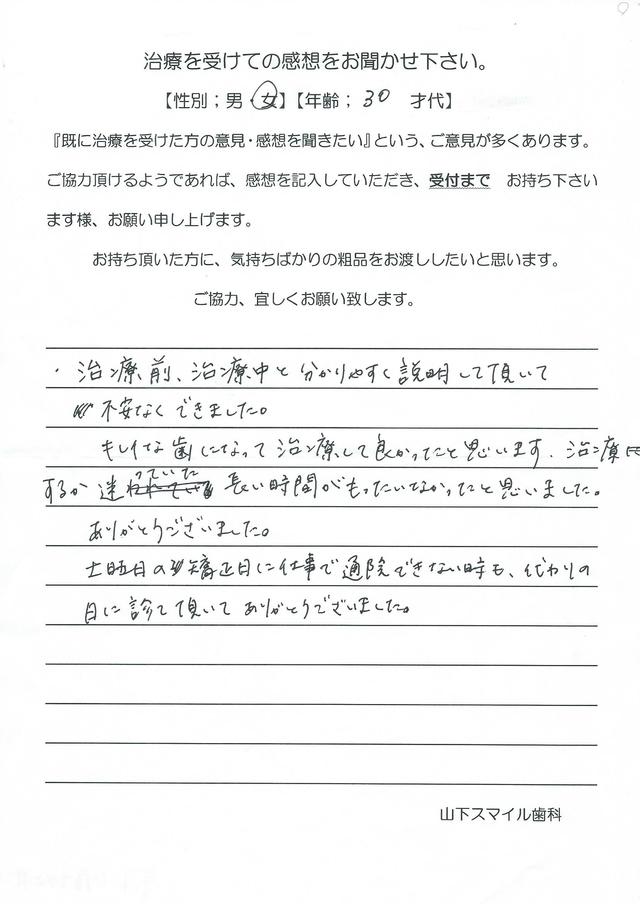 治療を受けての感想をお聞かせ下さい。
【性別；男・女】【年齢；30 才代】
『既に治療を受けた方の意見・感想を聞きたい』という、ご意見が多くあります。
ご協力頂けるようであれば、感想を記入していただき、受付まで お持ち下さい
ます様、お願い申し上げます。
お持ち頂いた方に、気持ちばかりの粗品をお渡ししたいと思います。
ご協力、宜しくお願い致します。
・治療前、治療中と分かりやすく説明して頂いて
不安なくできました。
キレイな歯になって治療して良かったと思います。治療に
するか迷っていた長い時間がもったいなかったと思いました。
ありがとうございました。
土曜日の矯正日に仕事で通院できない時も、代わりの
日に診て頂いてありがとうございました。
山下スマイル歯科